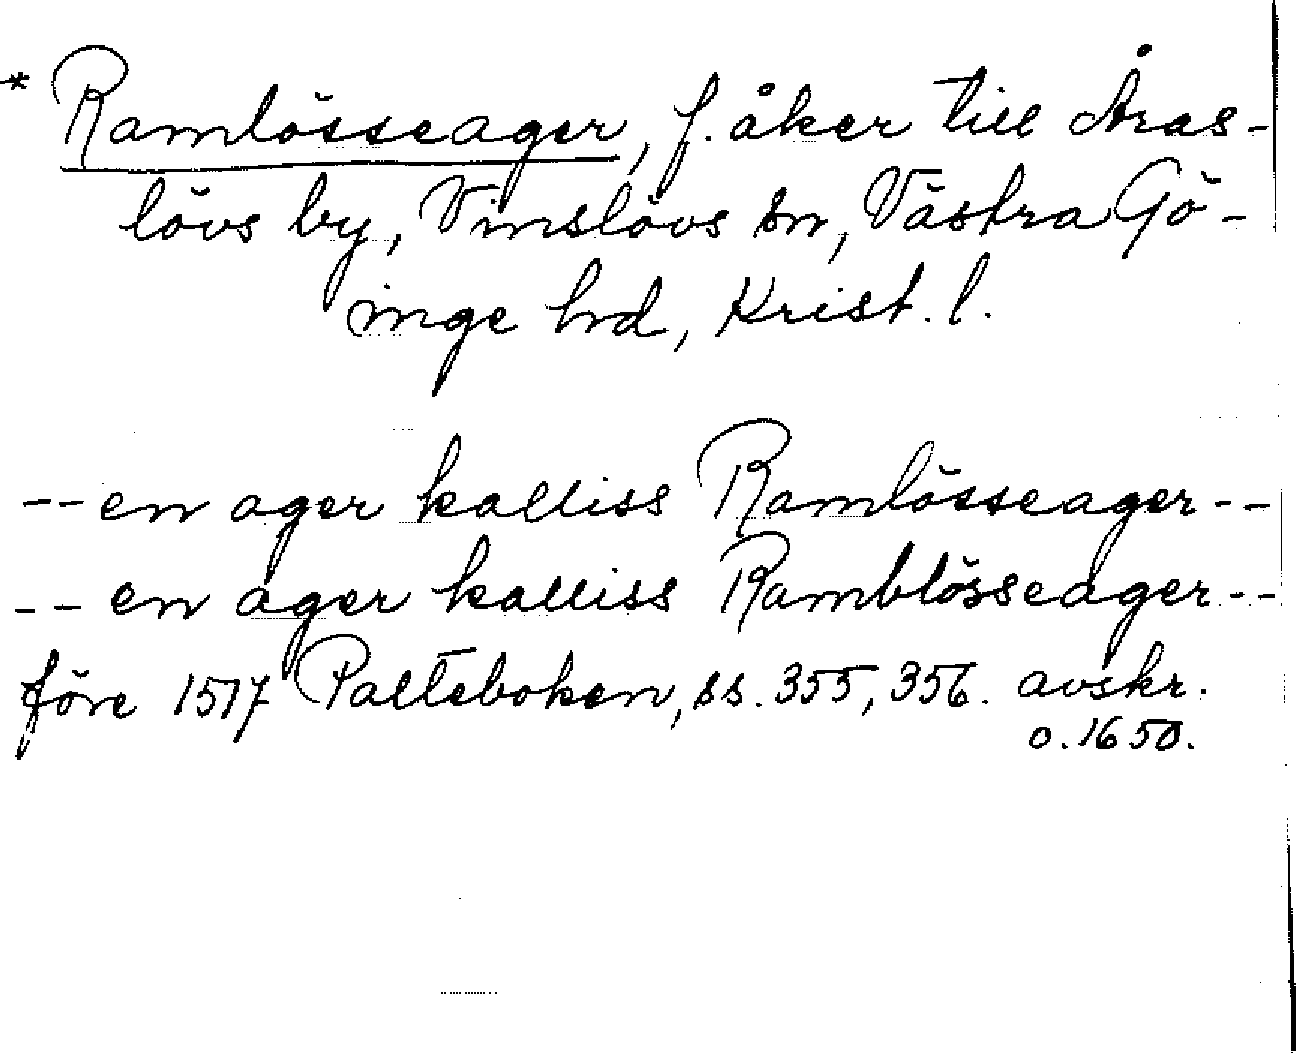 * Ramlösseager, f. åker till Åras-
lövs by, Vinslövs sn, Västra Gö-
inge hrd, Krist. l.
-- en ager kalliss Ramlösseager --
-- en ager kalliss Ramblösseager --
före 1517 Palteboken, ss. 355, 356. avskr.
o. 1650.